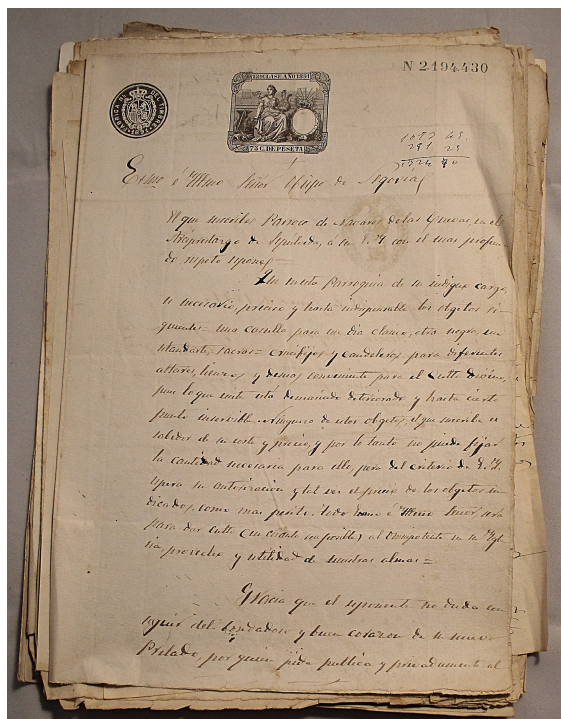 N 2.194.430
FABRICA DEL TIMBRE
1891
12ª CLASE AÑO 1891
75 C. DE PESETA
Exmo e Illmo Señor Obispo de Segovia
El que suscribe Parroco de Navares de las Cuevas, en el
Arciprestazgo de Sepulveda, a V. S. I con el mas profun-
do respeto espone=
En esta Parroquia de su indigno cargo,
es necesario, preciso y hasta indispensable los objetos si-
guientes= una casulla para un dia clasico, otra negra, un
estandarte, sacras= Crucifijos y candeleros para diferentes
altares, lienzos y demas conveniente para el Culto divino,
pues lo que existe está demasiado deteriorado y hasta cierto
punto inservible. Ninguno de estos objetos, el que suscribe es
sabedor de su coste y precio, y por lo tanto no puede fijar
la cantidad necesaria para ello, pero del criterio de V. S. I.
espera su autorizacion y tal vez el precio de los objetos in-
dicados, como mas perito, todo Exmo e Illmo Señor sera
para dar culto (en cuanto sea posible) al Omnipotente en su Igle-
sia, provecho y utilidad de nuestras almas=
Gracia que el esponente no duda con-
seguir del bondadoso y buen corazon de su nuevo
Prelado, por quien pide publica y privadamente al